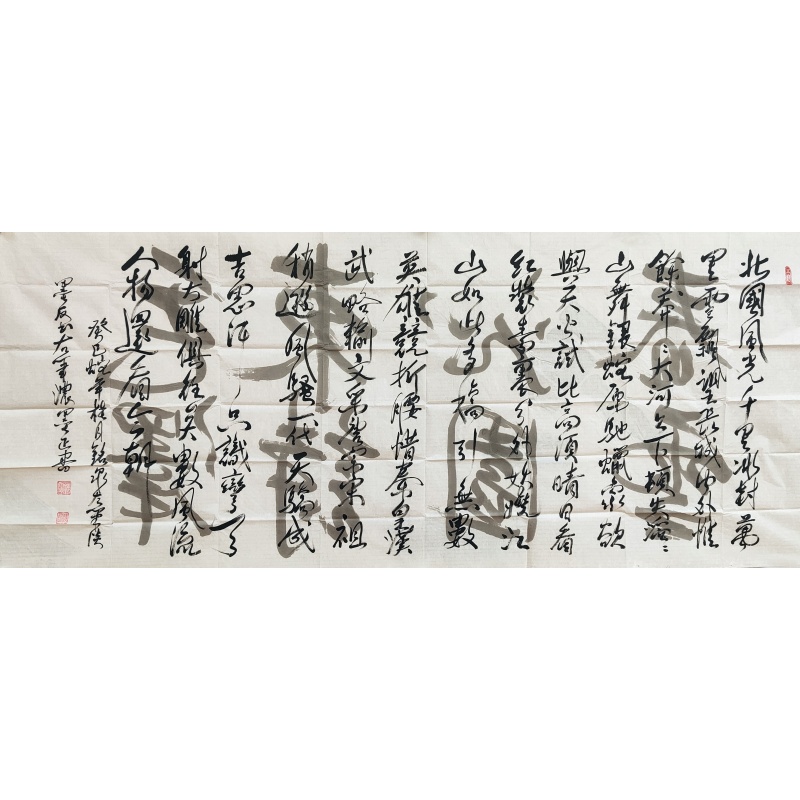 北國風光千里冰封萬
里雪飄望長城內外惟
餘莽〻大河上下頓失滔〻
山舞銀蛇原馳蠟象欲
與天公試比高須晴日看
紅裝素裹分外妖嬈江
山如此多嬌引無數
英雄競折腰惜秦皇漢
武略輸文采唐宗宋祖
稍遜風騷一代天驕成
吉思汗只識彎弓
射大雕俱往矣數風流
人物還看今朝
癸巳蛇年桂月
墨友